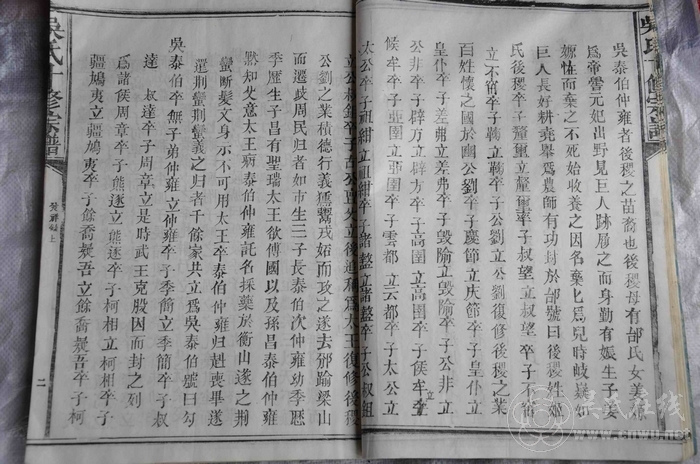 吳泰伯仲雍者後稷之苗裔也後稷母有邰氏女姜嫄
爲帝嚳元妃出野見巨人跡履之而身動有娠生子姜
嫄怪而棄之不死始收養之因名棄匕爲兒時岐嶷如
巨人長好耕堯舉爲農師有功封於邰號曰後稷姓姬
氏後稷卒子𨤲璽立𨤲璽卒子叔望立叔望卒子不窋
立不窋卒子鞠立鞠卒子公劉立公劉復修後稷之業
百姓懷之國於豳公劉卒子慶節立庆節卒子皇仆立
皇仆卒子差弗立差弗卒子毁隃立毁隃卒子公非立
公非卒子辟方立辟方卒子高圉立高圉卒子侯牟立
侯牟卒子亞圉立亞圉卒子雲都立云都卒子太公立
太公卒子祖紺立祖紺卒子諸盩立諸盩卒子公叔組
立公叔組卒子古公亶父立後追稱爲太王復修後稷
公劉之業積德行義獯鬻戎姤而政之遂去邠踰梁山
而遷歧周民归者如市生三子長泰伯次仲雍幼季歷
季歷生子昌有聖瑞太王欲傅國以及孫昌泰伯仲雍
默知父意太王病泰伯仲雍託名採藥於衡山遂之荆
蠻断髪文身示不可用太王卒泰伯仲雍归赴喪畢遂
還荆蠻荆蠻義之归者千餘家共立爲吳泰伯號曰勾
吳泰伯卒無子弟仲雍立仲雍卒子季簡立季簡卒子叔
達叔達卒子周章立是時武王克殷因而封之列
爲諸侯周章卒子熊遂立熊遂卒子柯相立柯相卒子
疆鳩夷立疆鳩夷卒子餘喬疑吾立餘喬疑吾卒子柯
吳氏十修宗譜
二
吳氏在线